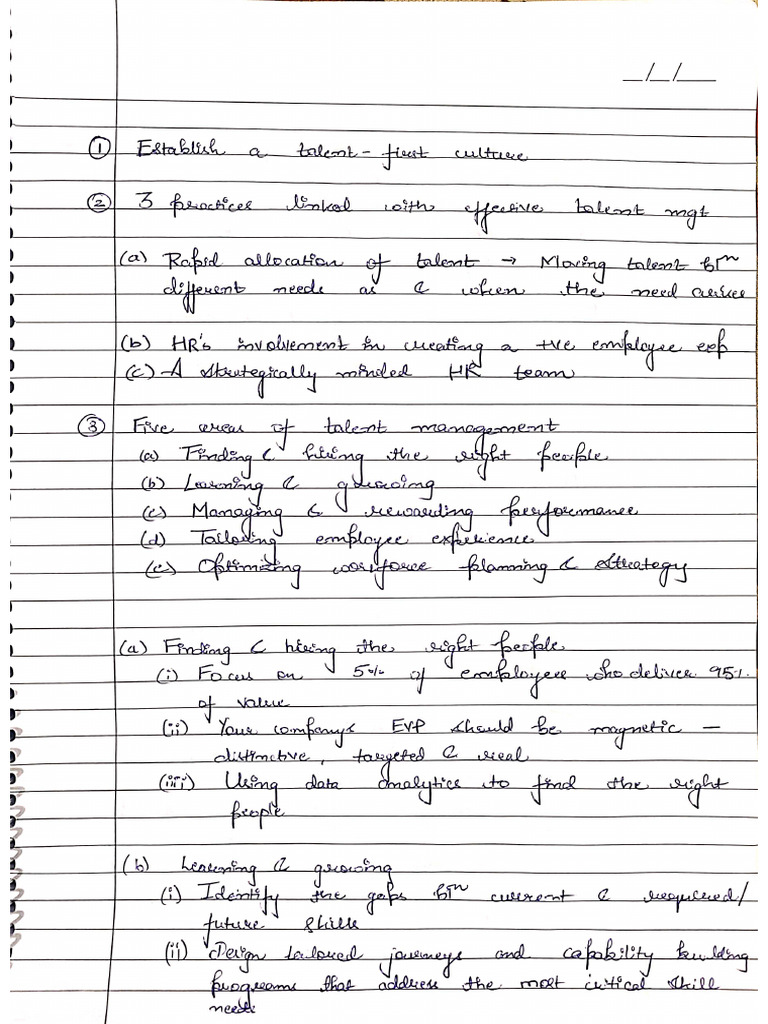 _/_/__
① Establish a talent-first culture
② 3 practices linked with effective talent mgt
(a) Rapid allocation of talent → Moving talent btn
different needs as & when the need arises
(b) HR's involvement in creating a +ve employee exp
(c) A strategically minded HR team
③ Five areas of talent management
(a) Finding & hiring the right people
(b) Learning & growing
(c) Managing & rewarding performance
(d) Tailoring employee experience
(e) Optimizing workforce planning & strategy
(a) Finding & hiring the right people
(i) Focus on 5% of employees who deliver 95%
of value
(ii) Your companys EVP should be magnetic –
distinctive, targeted & real
(iii) Using data analytics to find the right
people
(b) Learning & growing
(i) Identify the gaps btn current & required/
future skills
(ii) Design tailored journeys and capability building
programs that address the most critical skill
needs